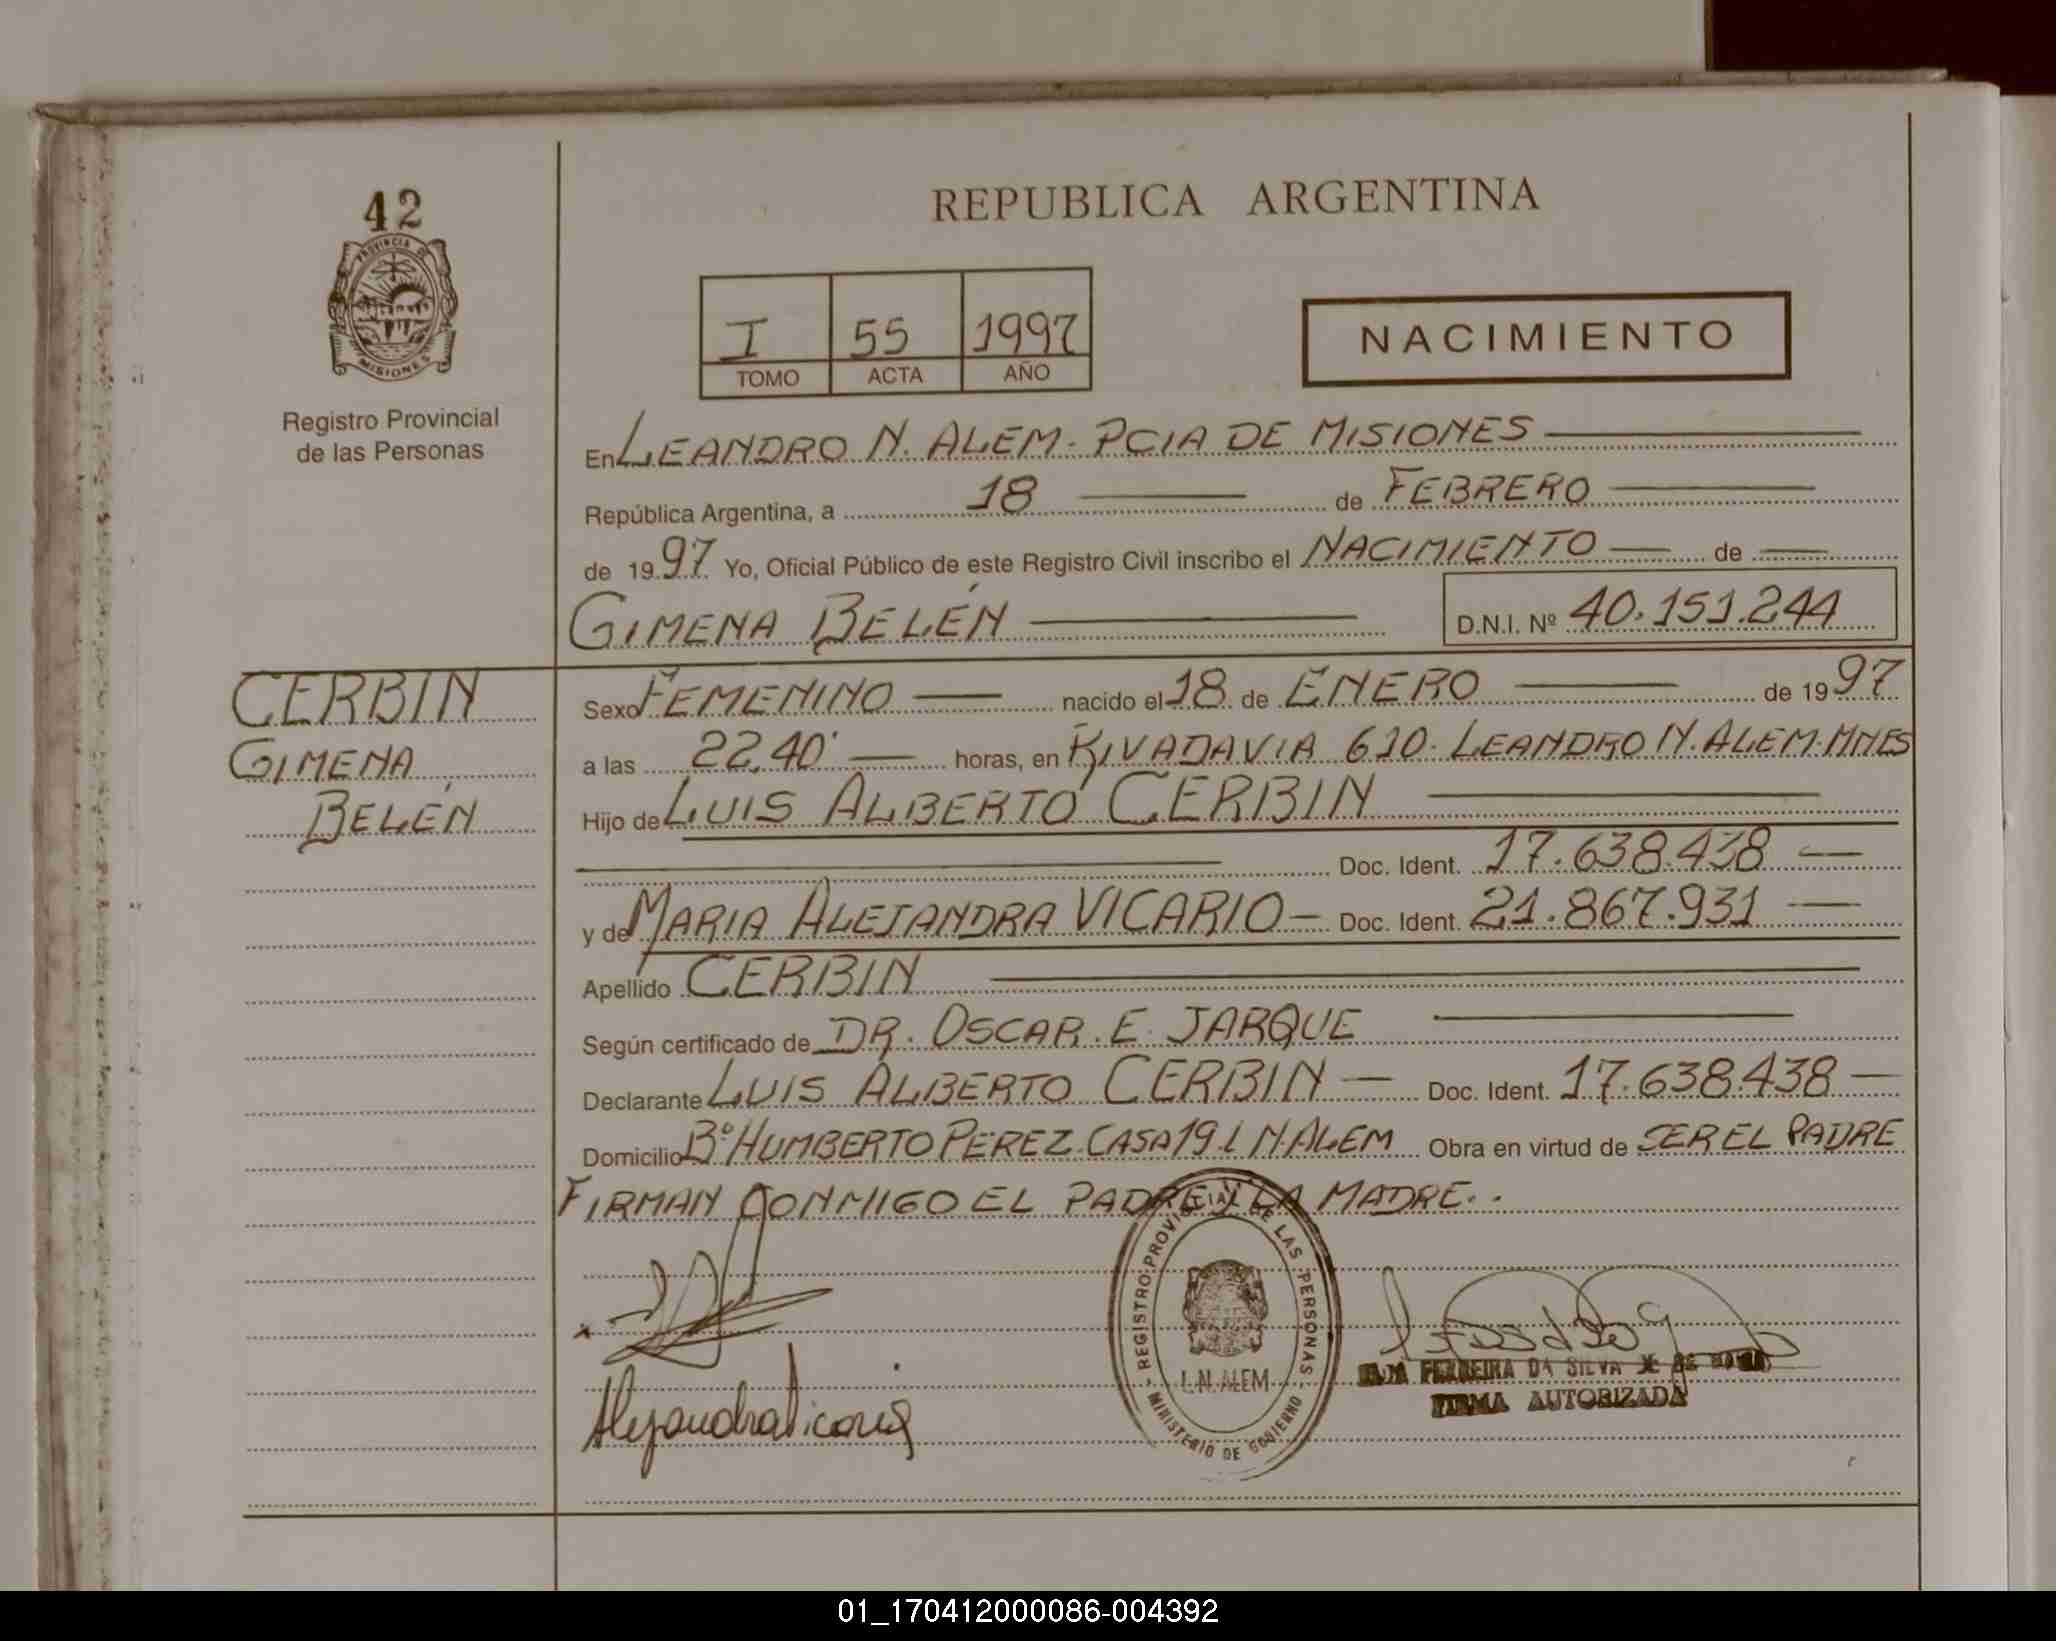 42
PROVINCIA DE
MISIONES
Registro Provincial
de las Personas
REPUBLICA ARGENTINA
I 55 1997
TOMO ACTA AÑO
NACIMIENTO
En LEANDRO N. ALEM - PCIA DE MISIONES
República Argentina, a 18 de FEBRERO
de 1997 Yo, Oficial Público de este Registro Civil inscribo el NACIMIENTO de
GIMENA BELÉN
D.N.I. Nº 40.151.244
CERBIN
GIMENA
BELÉN
Sexo FEMENINO nacido el 18 de ENERO de 1997
a las 22,40' horas, en RIVADAVIA 610. LEANDRO N. ALEM. MNES
Hijo de LUIS ALBERTO CERBIN
Doc. Ident. 17.638.438
y de MARIA ALEJANDRA VICARIO - Doc. Ident. 21.867.931
Apellido CERBIN
Según certificado de DR. OSCAR. E. JARQUE
Declarante LUIS ALBERTO CERBIN Doc. Ident. 17.638.438
Domicilio Bº HUMBERTO PEREZ. CASA 19. L N. ALEM Obra en virtud de SER EL PADRE
FIRMAN CONMIGO EL PADRE Y LA MADRE..
REGISTRO PROVINCIAL DE LAS PERSONAS
L.N. ALEM
MINISTERIO DE GOBIERNO
Alejandra Vicario
FERREIRA DA SILVA
FIRMA AUTORIZADA
01_170412000086-004392